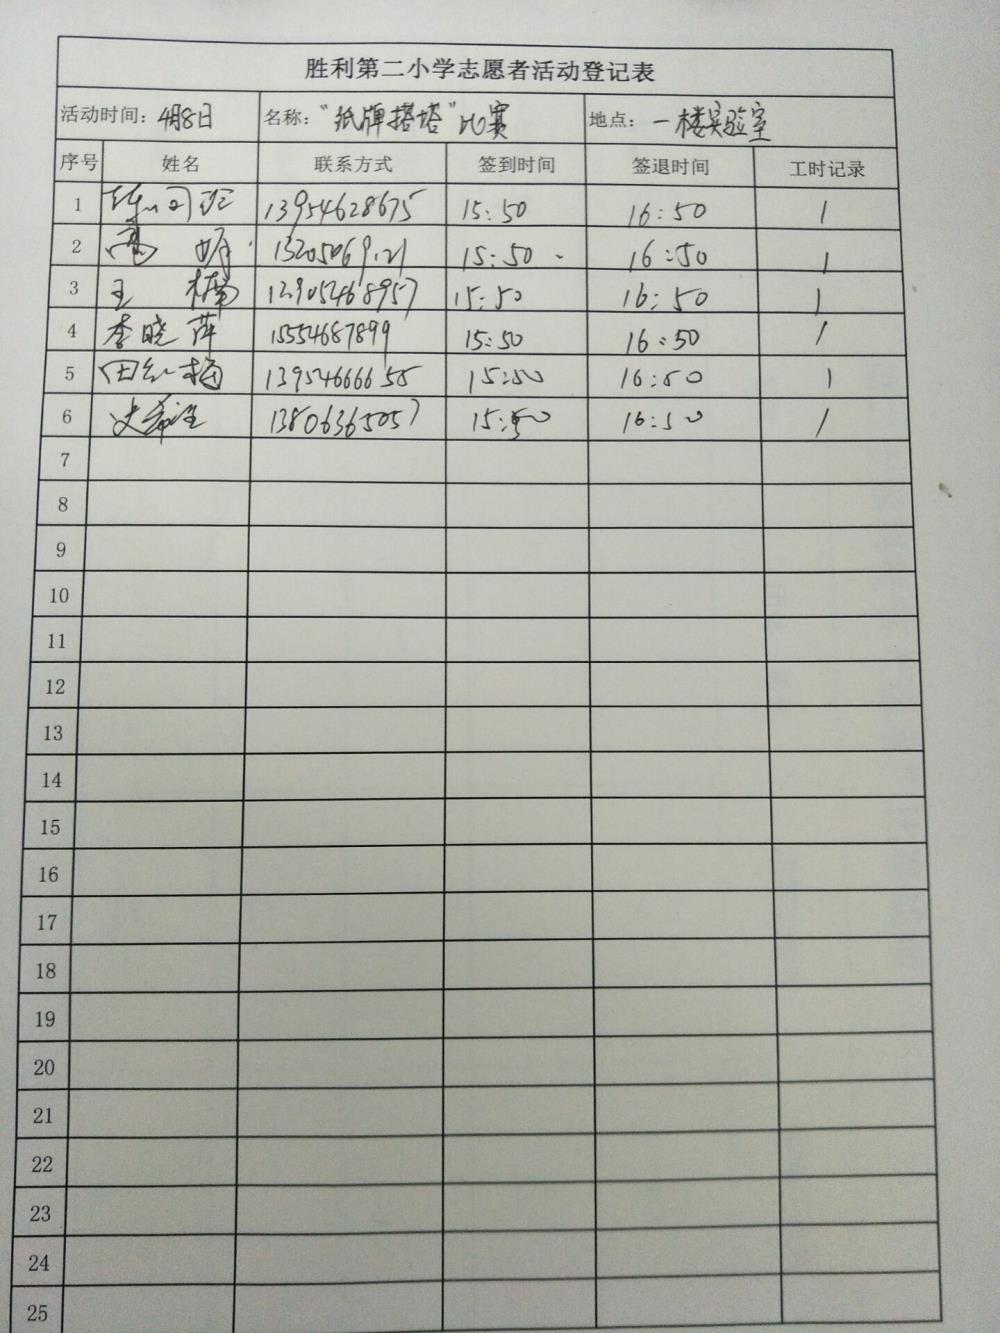 胜利第二小学志愿者活动登记表
活动时间：4月8日 名称："纸牌搭塔"比赛 地点：一楼实验室
序号 姓名 联系方式 签到时间 签退时间 工时记录
1 13954628675 15:50 16:50 1
2 高明 15:50 16:50 1
3 王楠 15:50 16:50 1
4 李晓萍 15554687899 15:50 16:50 1
5 田红梅 13954666658 15:50 16:50 1
6 13806365057 15:50 16:50 1
7
8
9
10
11
12
13
14
15
16
17
18
19
20
21
22
23
24
25